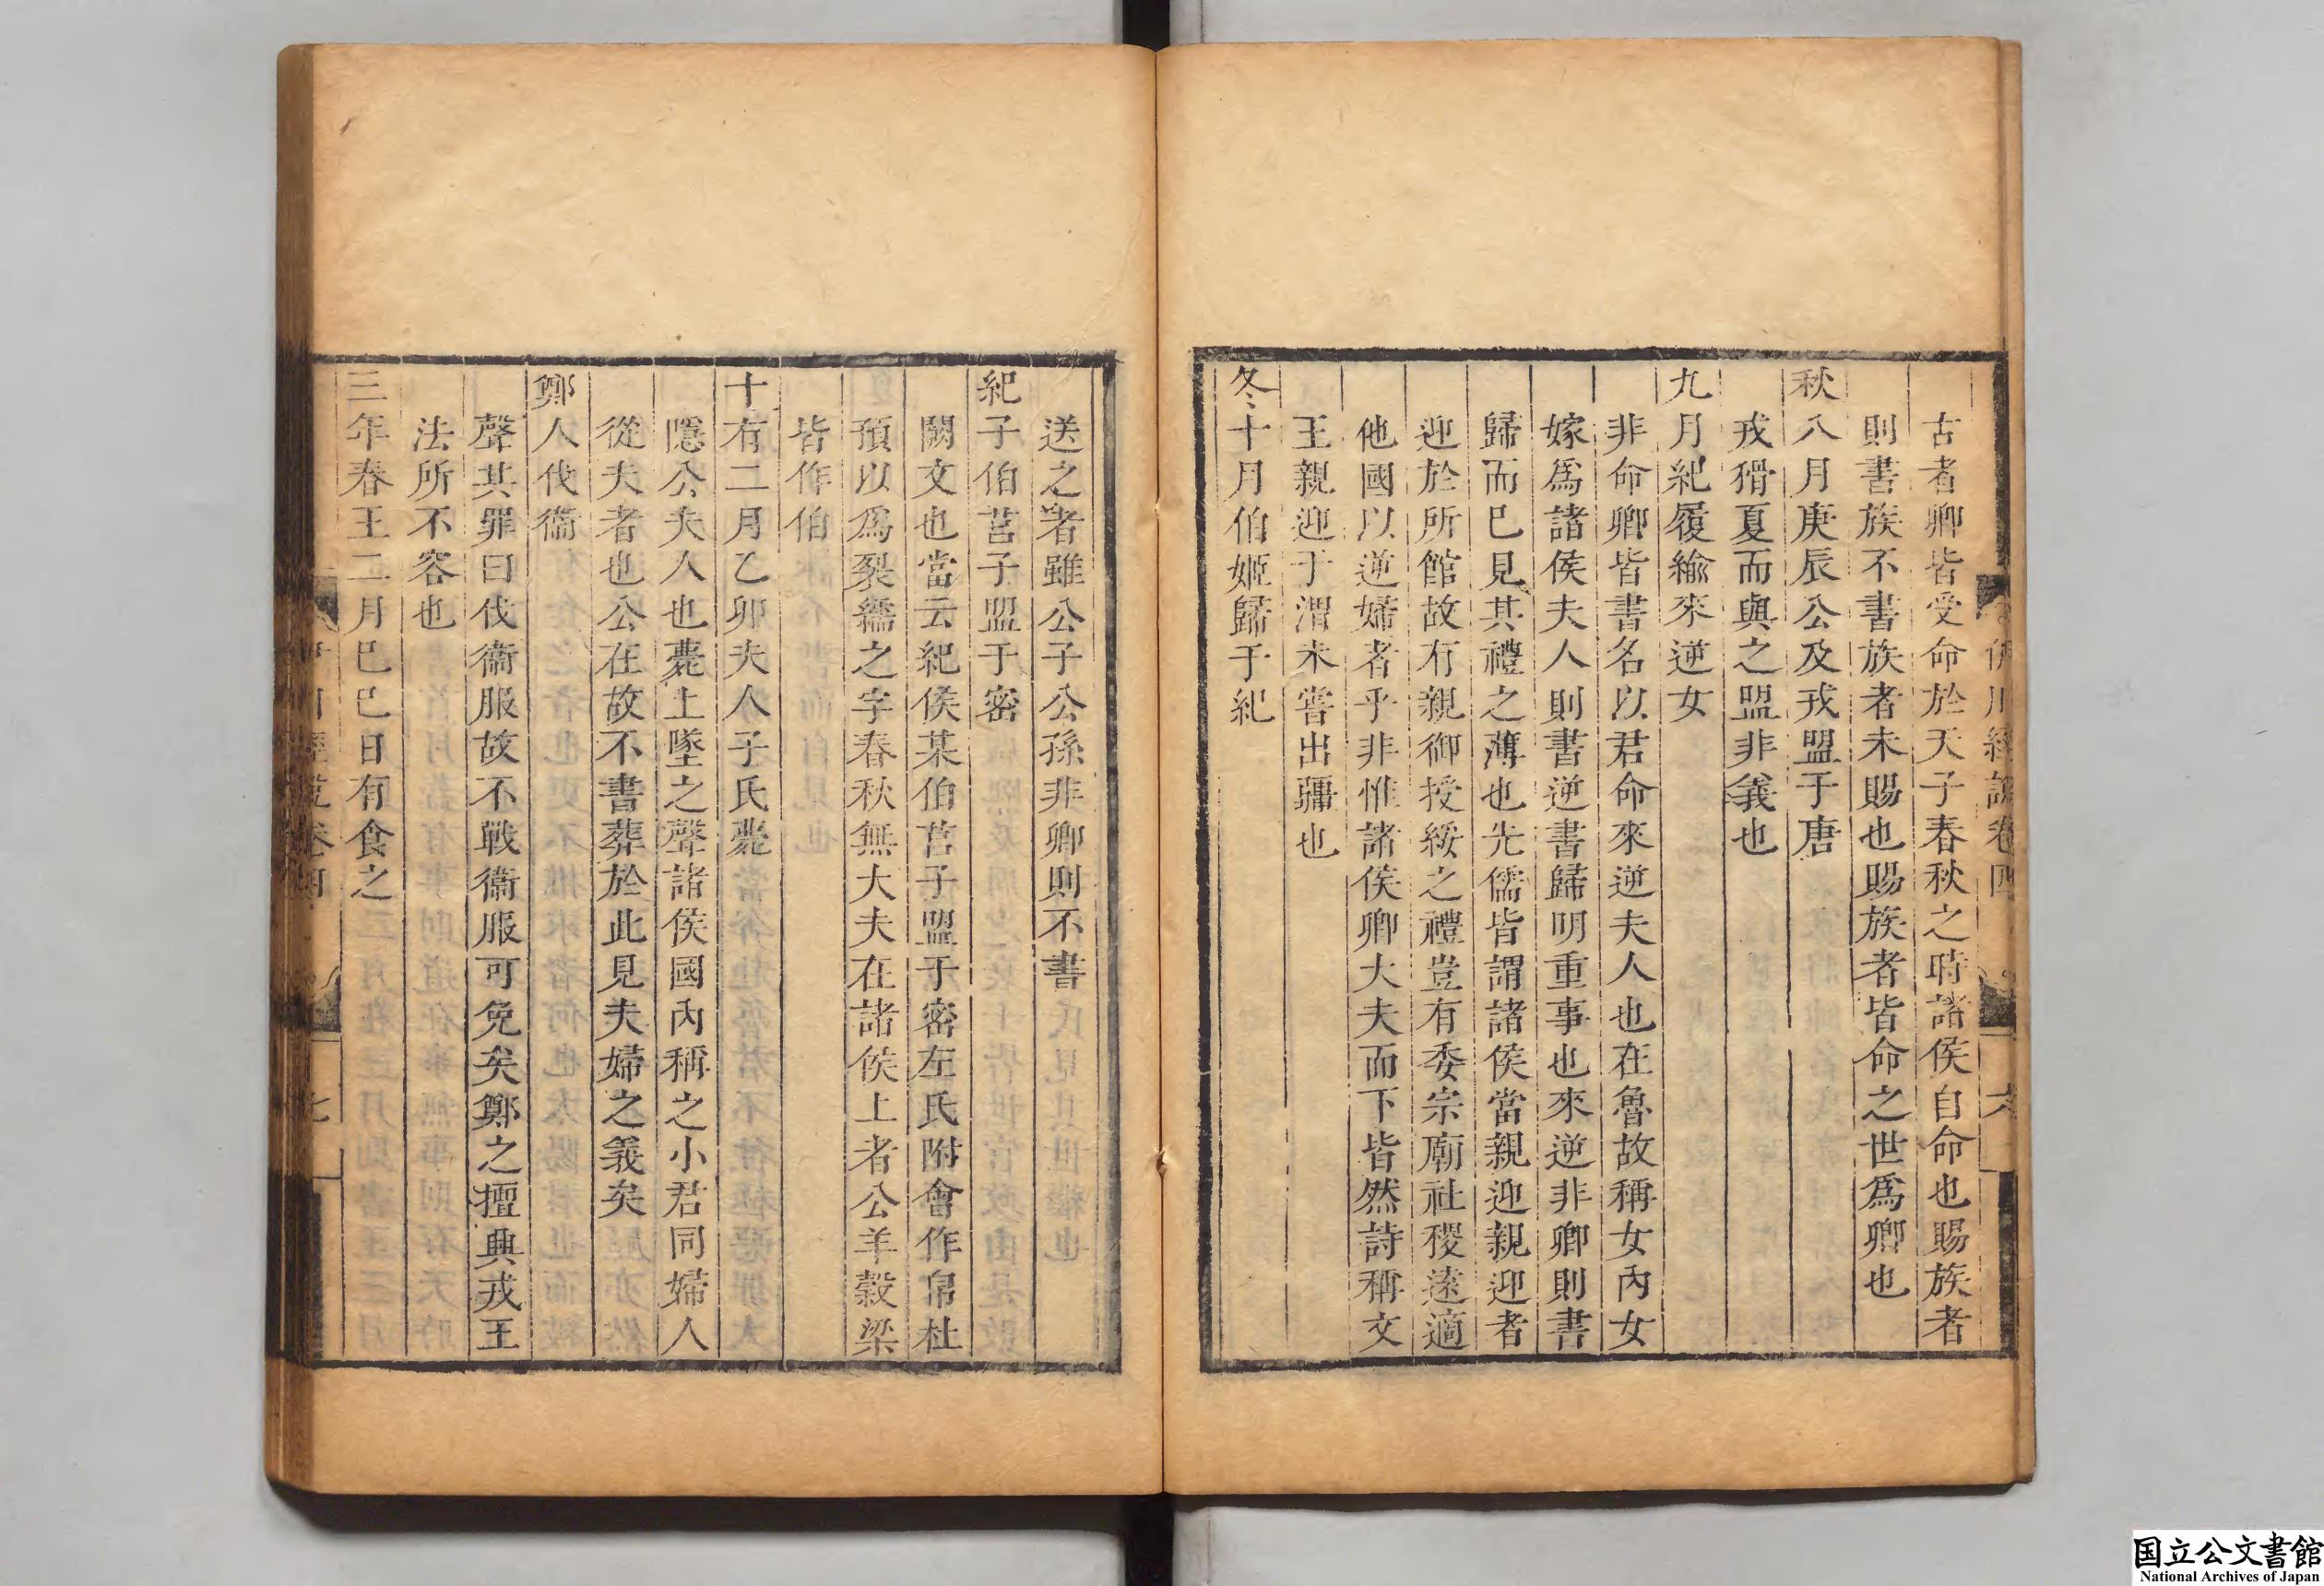 古者卿皆受命於天子春秋之時諸侯自命也賜族者
則書族不書族者未賜也賜族者皆命之世爲卿也
秋八月庚辰公及戎盟于唐
戎猾夏而與之盟非義也
九月紀履緰來逆女
非命卿皆書名以君命來逆夫人也在魯故稱女內女
嫁爲諸侯夫人則書逆書歸明重事也來逆非卿則書
歸而已見其禮之薄也先儒皆謂諸侯當親迎親迎者
迎於所館故有親御授綏之禮豈有委宗廟社稷遠適
他國以逆婦者乎非惟諸侯卿大夫而下皆然詩稱文
王親迎于渭未嘗出疆也
冬十月伯姬歸于紀
送之者雖公子公孫非卿則不書
紀子伯莒子盟于密
闕文也當云紀侯某伯莒子盟于密左氏附會作帛杜
預以爲裂繻之字春秋無大夫在諸侯上者公羊穀梁
皆作伯
十有二月乙卯夫人子氏薨
隱公夫人也薨上墜之聲諸侯國內稱之小君同婦人
從夫者也公在故不書葬於此見夫婦之義矣
鄭人伐衞
聲其罪曰伐衞服故不戰衞服可免矣鄭之擅興戎王
法所不容也
三年春王二月己巳日有食之
經說卷四
六
七
国立公文書館
National Archives of Japan